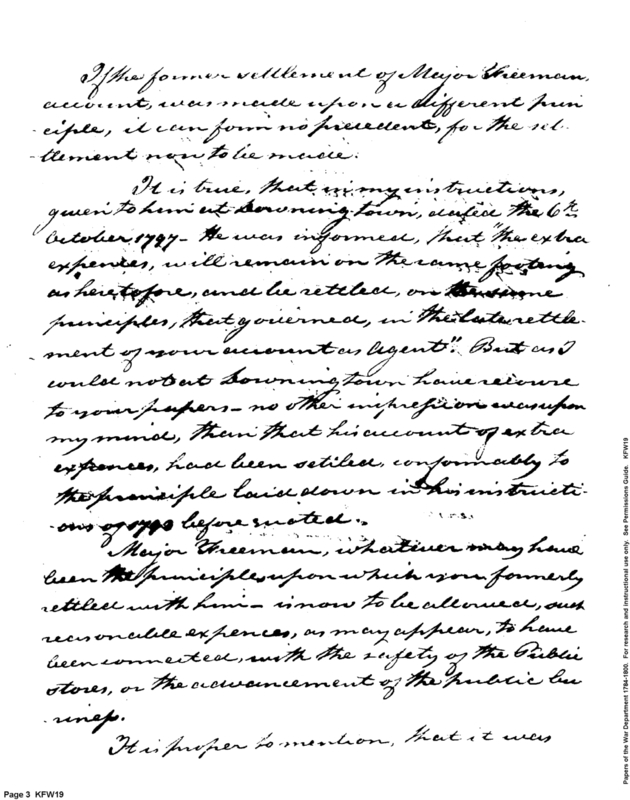 If the former settlement of Major Freeman,
account, was made upon a different prin
-ciple, it can form no precedent, for the set-
tlement now to be made.
It is true, that in my instructions,
given to him at Downing town, dated the 6th
October 1797- He was informed, that "the extra
expences, will remain on the same footing
as heretofore, and be settled, on the same
principles, that governed, in the late settle-
ment of your account as Agent". But as I
could not at Downing town have recourse
to your papers- no other impression was upon
my mind, than that his account of extra
expences, had been settled, conformably to
the principle laid down in his instructi-
ons of before quoted.
Major Freeman, whatever may have
been the principles upon which you formerly
settled with him- is now to be allowed, such
reasonable expences, as may appear, to have
been connected, with the safety of the Public
stores, or the advancement of the public bu
-siness.
It is proper to mention, that it was
Page 3 KFW19
Papers of the War Department 1784-1800. For research and instructional use only. See Permissions Guide. KFW19